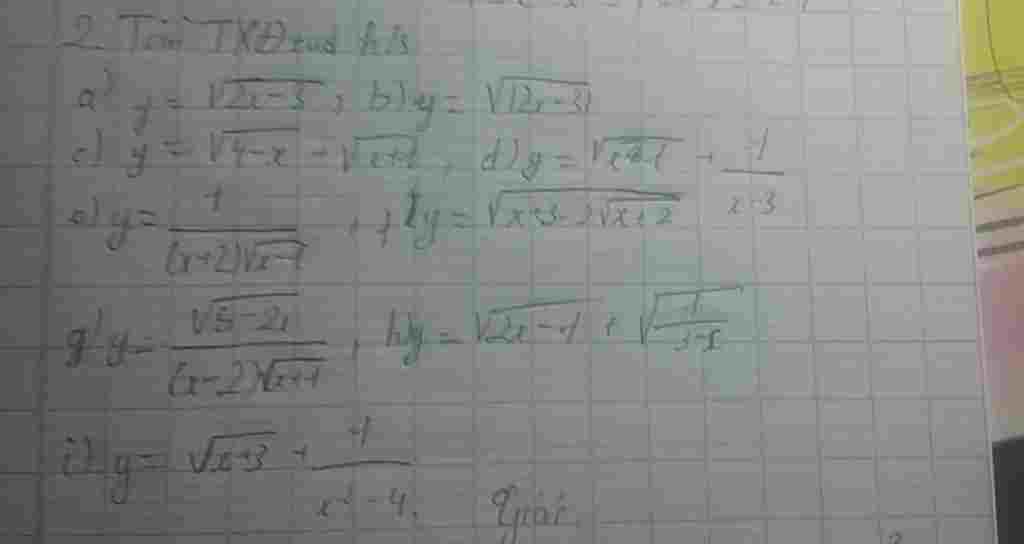 2. Tìm TXĐ của h/s
a) y = √(2x-3) ; b) y = √(|2x-3|)
c) y = √(4-x) + √(x+1) , d) y = √(x-1) + 1/(x-3)
e) y = 1/((x+2)√(x-1)) , f) y = √(x+3-2√(x+2))
g) y = √(5-2x)/((x-2)√(x-1)) , h) y = √(2x-1) + √(1/(3-x))
i) y = √(x+3) + 1/(x²-4) .
Giải